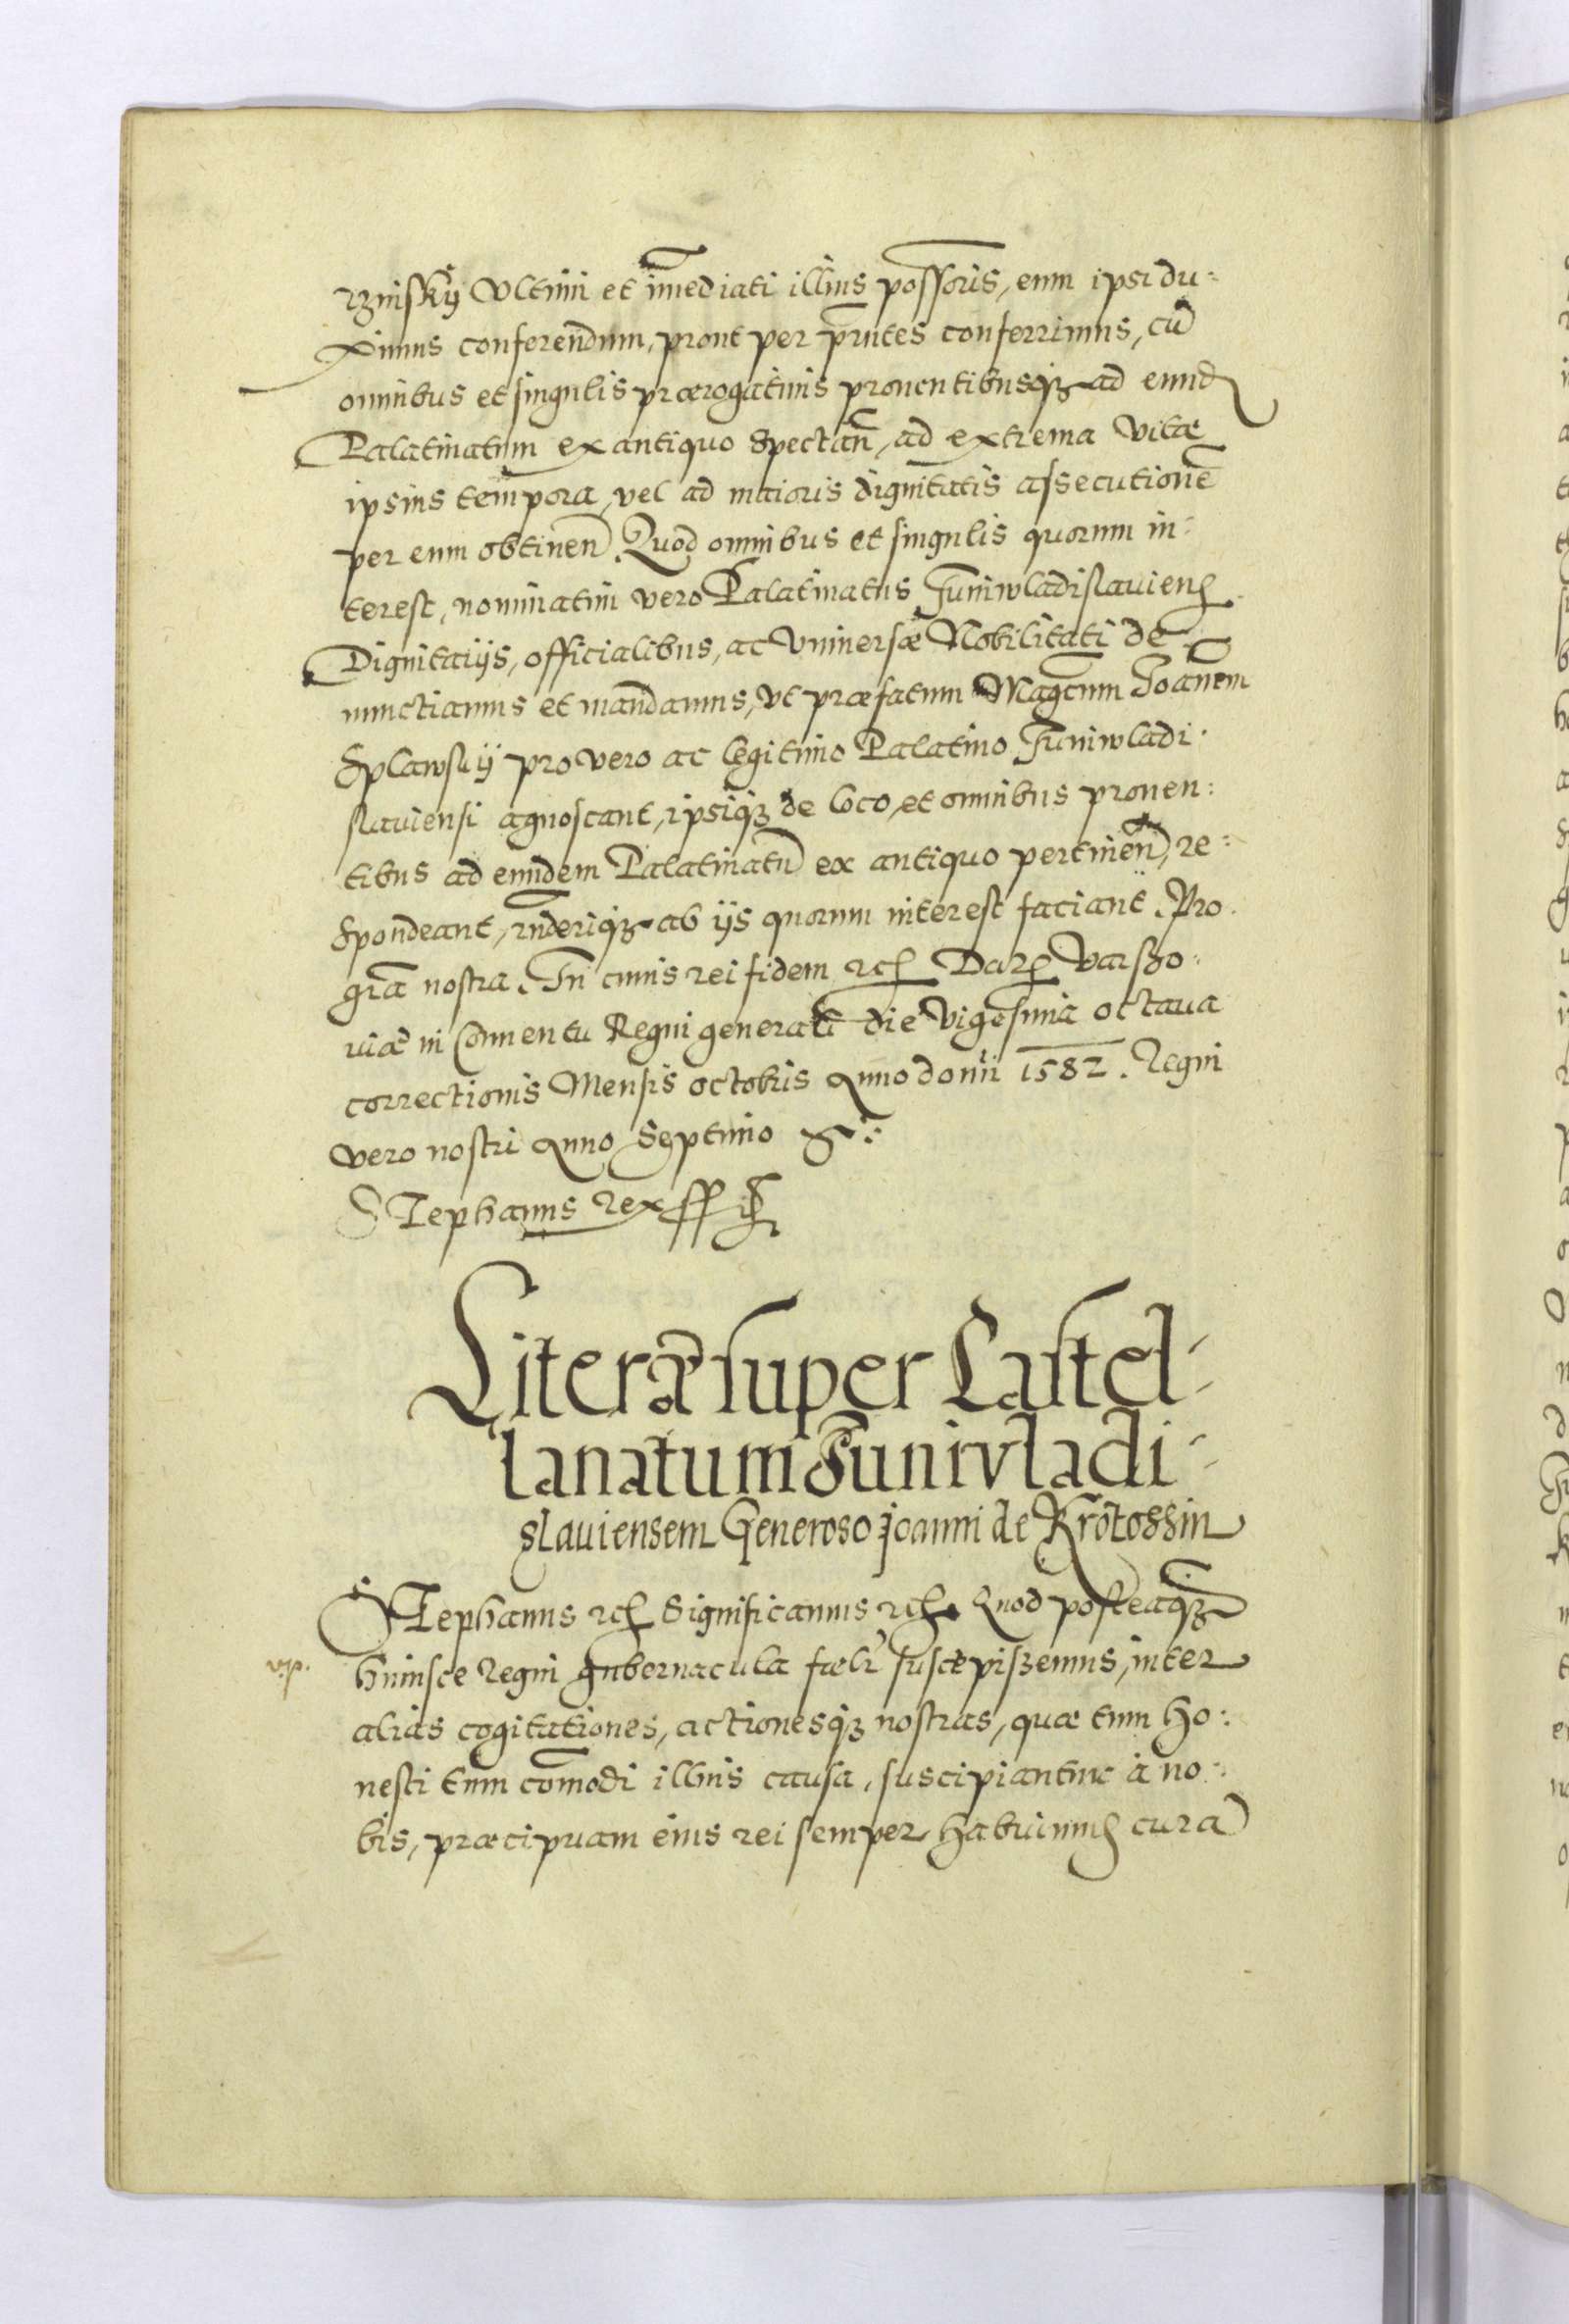 rzinskÿ Vltimi et im̃ediati illius poss̃oris, eum ipsi du:
ximus conferendum, prout per pr̃ntes conferrimus, cũ
omnibus et singulis prærogatiuis prouentibusqꝫ ad eund
Palatinatum ex antiquo spectañ, ad extrema vitæ
ipsius tempora, vel ad maioris dignitatis assecutionẽ
per eum obtineñ Quod omnibus et singulis quorum in:
terest, nominatim vero Palatinatus Juniwladislauien
Dignitarijs, officialibus, ac Vniuersæ Nobilitati de
nunctiamus et mandamus, vt præfatum Mag̃cum Joañem
Splawskÿ pro vero ac legitimo Palatino Juniwladi:
slauiensi agnoscant, ipsiqꝫ de loco, et omnibus prouen:
tibus ad eundem Palatinatũ ex antiquo pertineñ, re:
spondeant, r̃nderiqꝫ ab ijs quorum interest faciant. Pro
gr̃a nostra. In cuius rei fidem etc Dat Varszo:
uiæ in Conuentu Regni generali die Vigesima octaua
correctionis Mensis octobris Anno domi 1582. Regni
vero nostri Anno Septimo
Stephanus Rex ss
Literæ super Castel-
lanatum Junivladi-
slauiensem Generoso Joanni de Krotossin
Stephanus etc Significamus etc Quod posteaqꝫ
v.p. huiusce Regni gubernacula fæli suscepiszemus, inter
alias cogitationes, actionesqꝫ nostras, quæ tum ho:
nesti tum com̃odi illius causa, suscipiantur à no:
bis, præcipuam eius rei semper habuimus curã